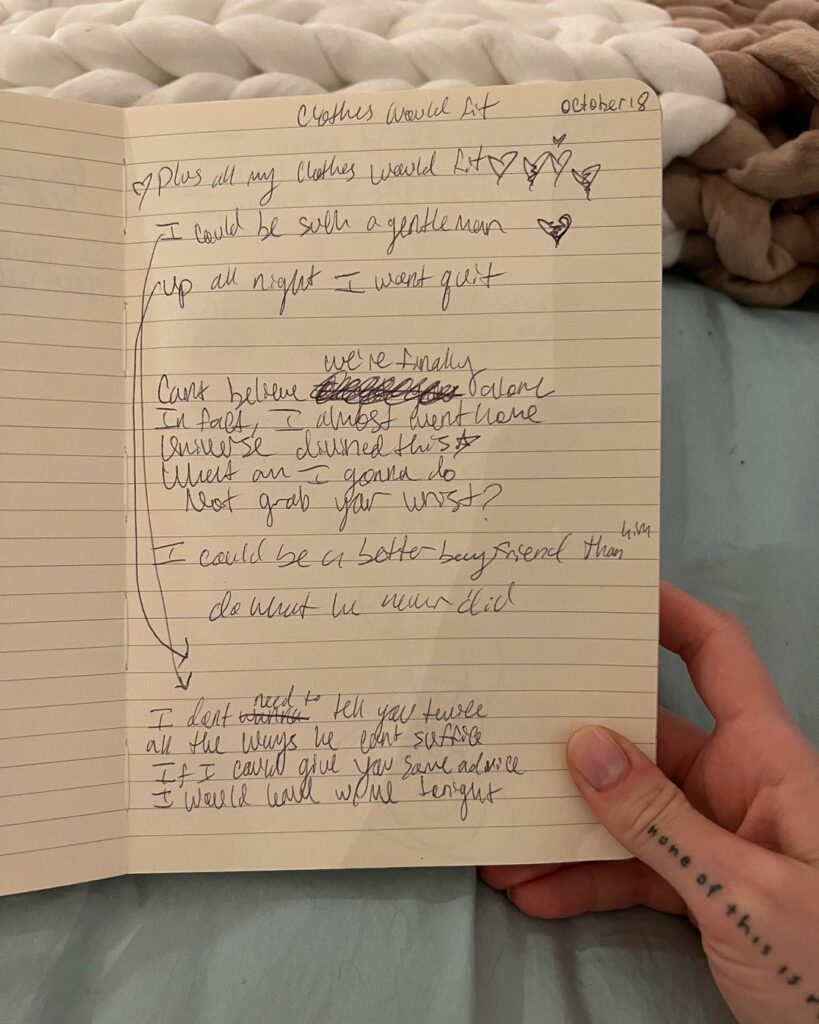 Clothes Would fit
october 18
Plus all my Clothes Would fit
I could be such a gentleman
up all night I wont quit
we're finally
Cant believe alone
In fact, I almost went home
Universe divined this
What am I gonna do
Not grab your wrist?
I could be a better boyfriend than him
do what he never did
need to
I dont wanna tell you twice
all the ways he cant suffice
If I could give you some advice
I would leave w/ me tonight
none of this is r